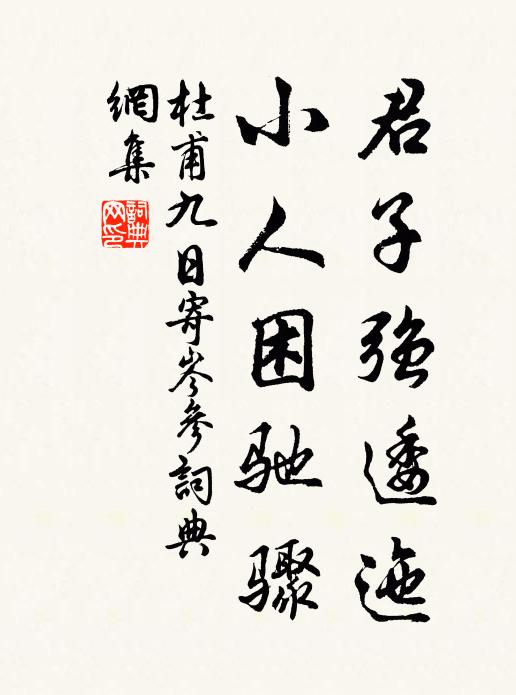 君子強逶迤
小人困驰骤
杜甫九日寄岑参詞典
網集
詞典网印